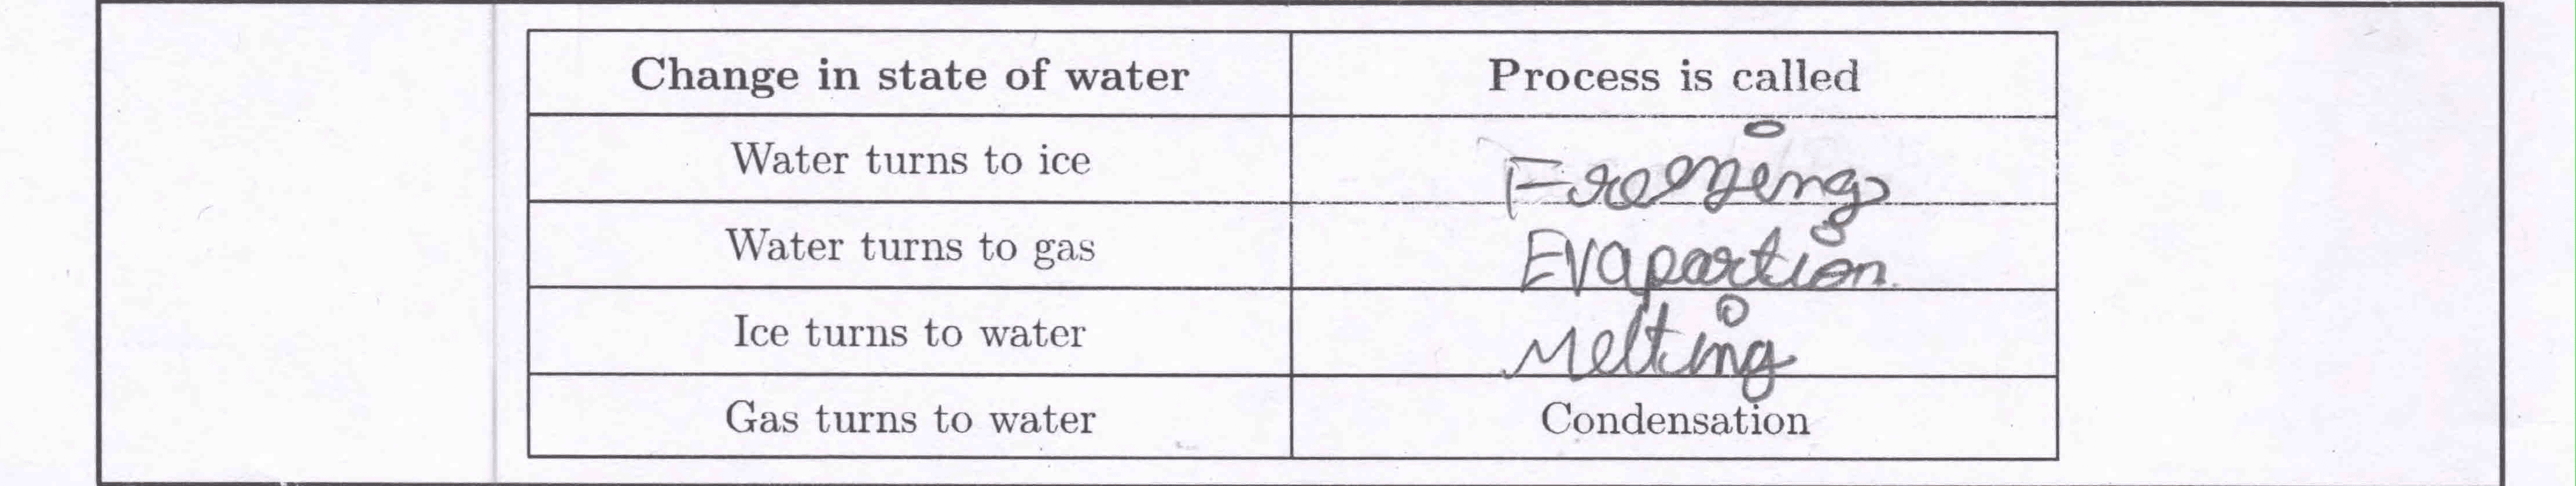 Change in state of water Process is called
Water turns to ice Freezing
Water turns to gas Evapartion
Ice turns to water Melting
Gas turns to water Condensation